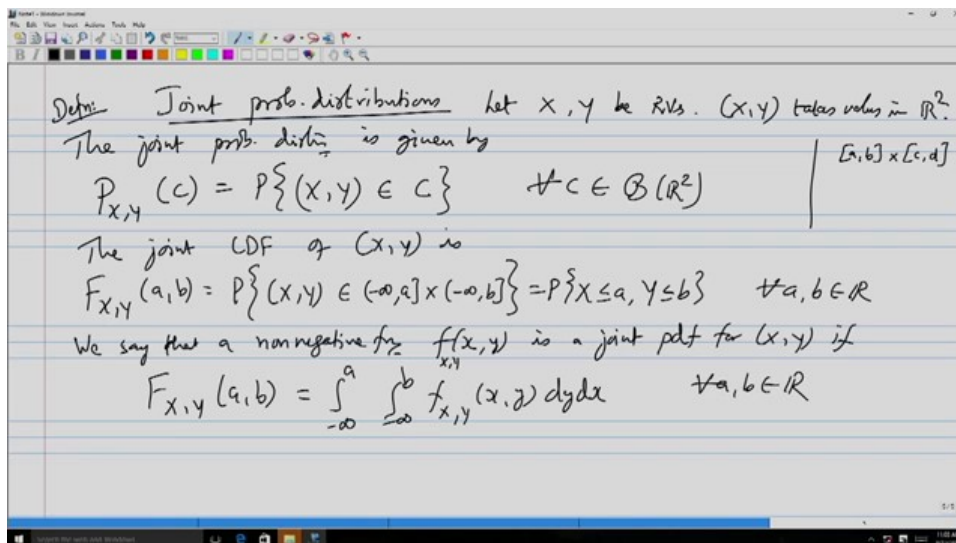 Note1 - Windows Journal
File Edit View Insert Actions Tools Help
B I
Defn: Joint prob. distributions Let X, Y be RVs. (X,Y) takes values in ℝ².
The joint prob. distn is given by
[a,b] × [c,d]
P_{X,Y} (C) = P{(X,Y) ∈ C} ∀ C ∈ B(ℝ²)
The joint CDF of (X,Y) is
F_{X,Y} (a,b) = P{(X,Y) ∈ (-∞,a] × (-∞,b]} = P{X ≤ a, Y ≤ b} ∀ a, b ∈ ℝ
We say that a nonnegative fn f_{X,Y}(x,y) is a joint pdf for (X,Y) if
F_{X,Y} (a,b) = ∫_{-∞}^{a} ∫_{-∞}^{b} f_{X,Y} (x,y) dy dx ∀ a, b ∈ ℝ
5/5